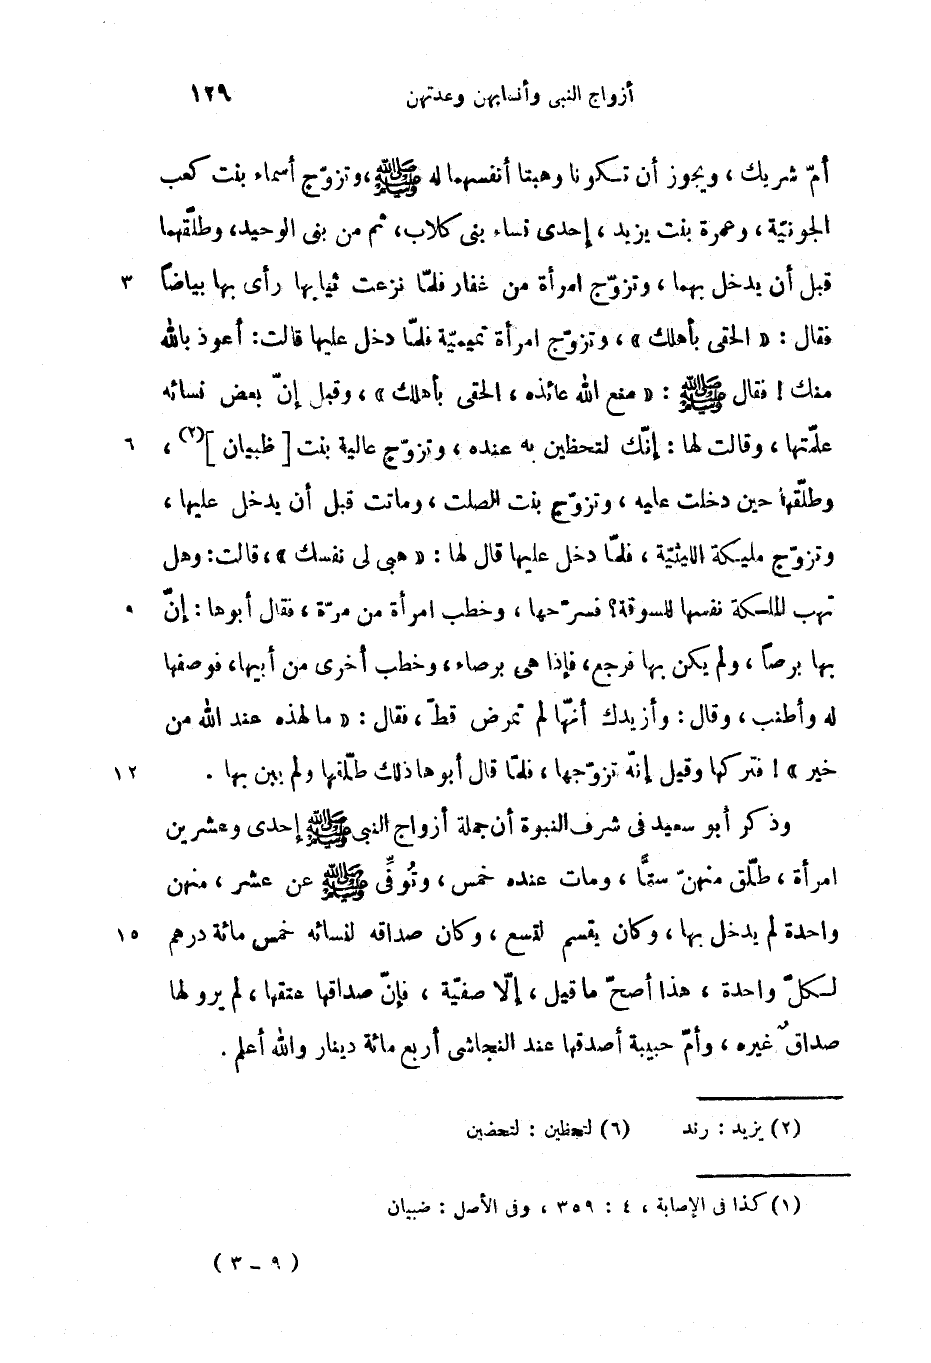 أزواج النبى وأنسابهن وعدتهن ١٢٩
أمّ شريك ، ويجوز أن تكونا وهبتا أنفسهما له ﷺ ، وتزوّج أسماء بنت كعب
الجونيّة ، وعمرة بنت يزيد ، إحدى نساء بنى كلاب، ثم من بنى الوحيد، وطلّقهما
قبل أن يدخل بهما ، وتزوّج امرأة من غفار فلمّا نزعت ثيابها رأى بها بياضاً ٣
فقال : « الحقى بأهلك » ، وتزوّج امرأة تميميّة فلمّا دخل عليها قالت: أعوذ بالله
منك ! فقال ﷺ : « منع الله عائذه ، الحقى بأهلك » ، وقيل إنّ بعض نسائه
علّمتها ، وقالت لها : إنّك لتحظين به عنده ، وتزوّج عالية بنت [ ظبيان ](٢) ، ٦
وطلّقها حين دخلت عليه ، وتزوّج بنت الصلت ، وماتت قبل أن يدخل عليها ،
وتزوّج مليكة الليثيّة ، فلمّا دخل عليها قال لها : « هبى لى نفسك » ، قالت: وهل
تهب الملكة نفسها للسوقة؟ فسرّحها ، وخطب امرأة من مرّة ، فقال أبوها : إنّ ٩
بها برصاً ، ولم يكن بها فرجع، فإذا هى برصاء ، وخطب أخرى من أبيها، فوصفها
له وأطنب ، وقال : وأزيدك أنّها لم تمرض قطّ ، فقال : « ما لهذه عند الله من
خير » ! فتركها وقيل إنّه تزوّجها ، فلمّا قال أبوها ذلك طلّقها ولم يبن بها . ١٢
وذكر أبو سعيد فى شرف النبوة أن جملة أزواج النبى ﷺ إحدى وعشرين
امرأة ، طلّق منهنّ ستًّا ، ومات عنده خمس ، وتُوفِّى ﷺ عن عشر ، منهن
واحدة لم يدخل بها ، وكان يقسم لتسع ، وكان صداقه لنسائه خمس مائة درهم ١٥
لكلّ واحدة ، هذا أصحّ ما قيل ، إلّا صفيّة ، فإنّ صداقها عتقها ، لم يرو لها
صداقٌ غيره ، وأمّ حبيبة أصدقها عند النجاشى أربع مائة دينار والله أعلم .
(٢) يزيد : رند (٦) لتحظين : لتحضين
(١) كذا فى الإصابة ، ٤ : ٣٥٩ ، وفى الأصل : ضبيان
( ٩ – ٣ )